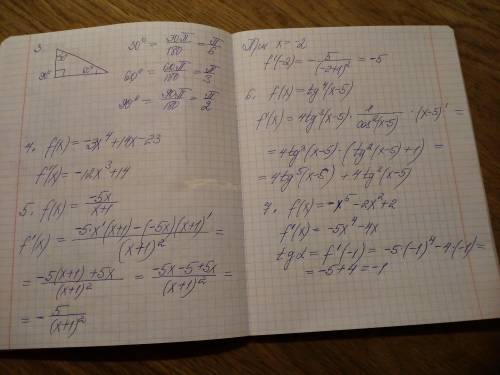 3.
30° 90° 60°
30° = 30π/180 = π/6
60° = 60π/180 = π/3
90° = 90π/180 = π/2
4. f(x) = -3x⁴+14x-23
f'(x) = -12x³+14
5. f(x) = -5x/(x+1)
f'(x) = (-5·x'(x+1)-(-5x)(x+1)')/(x+1)² =
= (-5(x+1)+5x)/(x+1)² = (-5x-5+5x)/(x+1)² =
= - 5/(x+1)²
При x = -2
f'(-2) = - 5/(-2+1)² = -5
6. f(x) = tg⁴(x-5)
f'(x) = 4tg³(x-5) · 1/cos²(x-5) · (x-5)' =
= 4tg³(x-5) · (tg²(x-5)+1) =
= 4tg⁵(x-5) + 4tg³(x-5)
7. f(x) = -x⁵-2x²+2
f'(x) = -5x⁴-4x
tgα = f'(-1) = -5·(-1)⁴-4·(-1) =
= -5+4 = -1